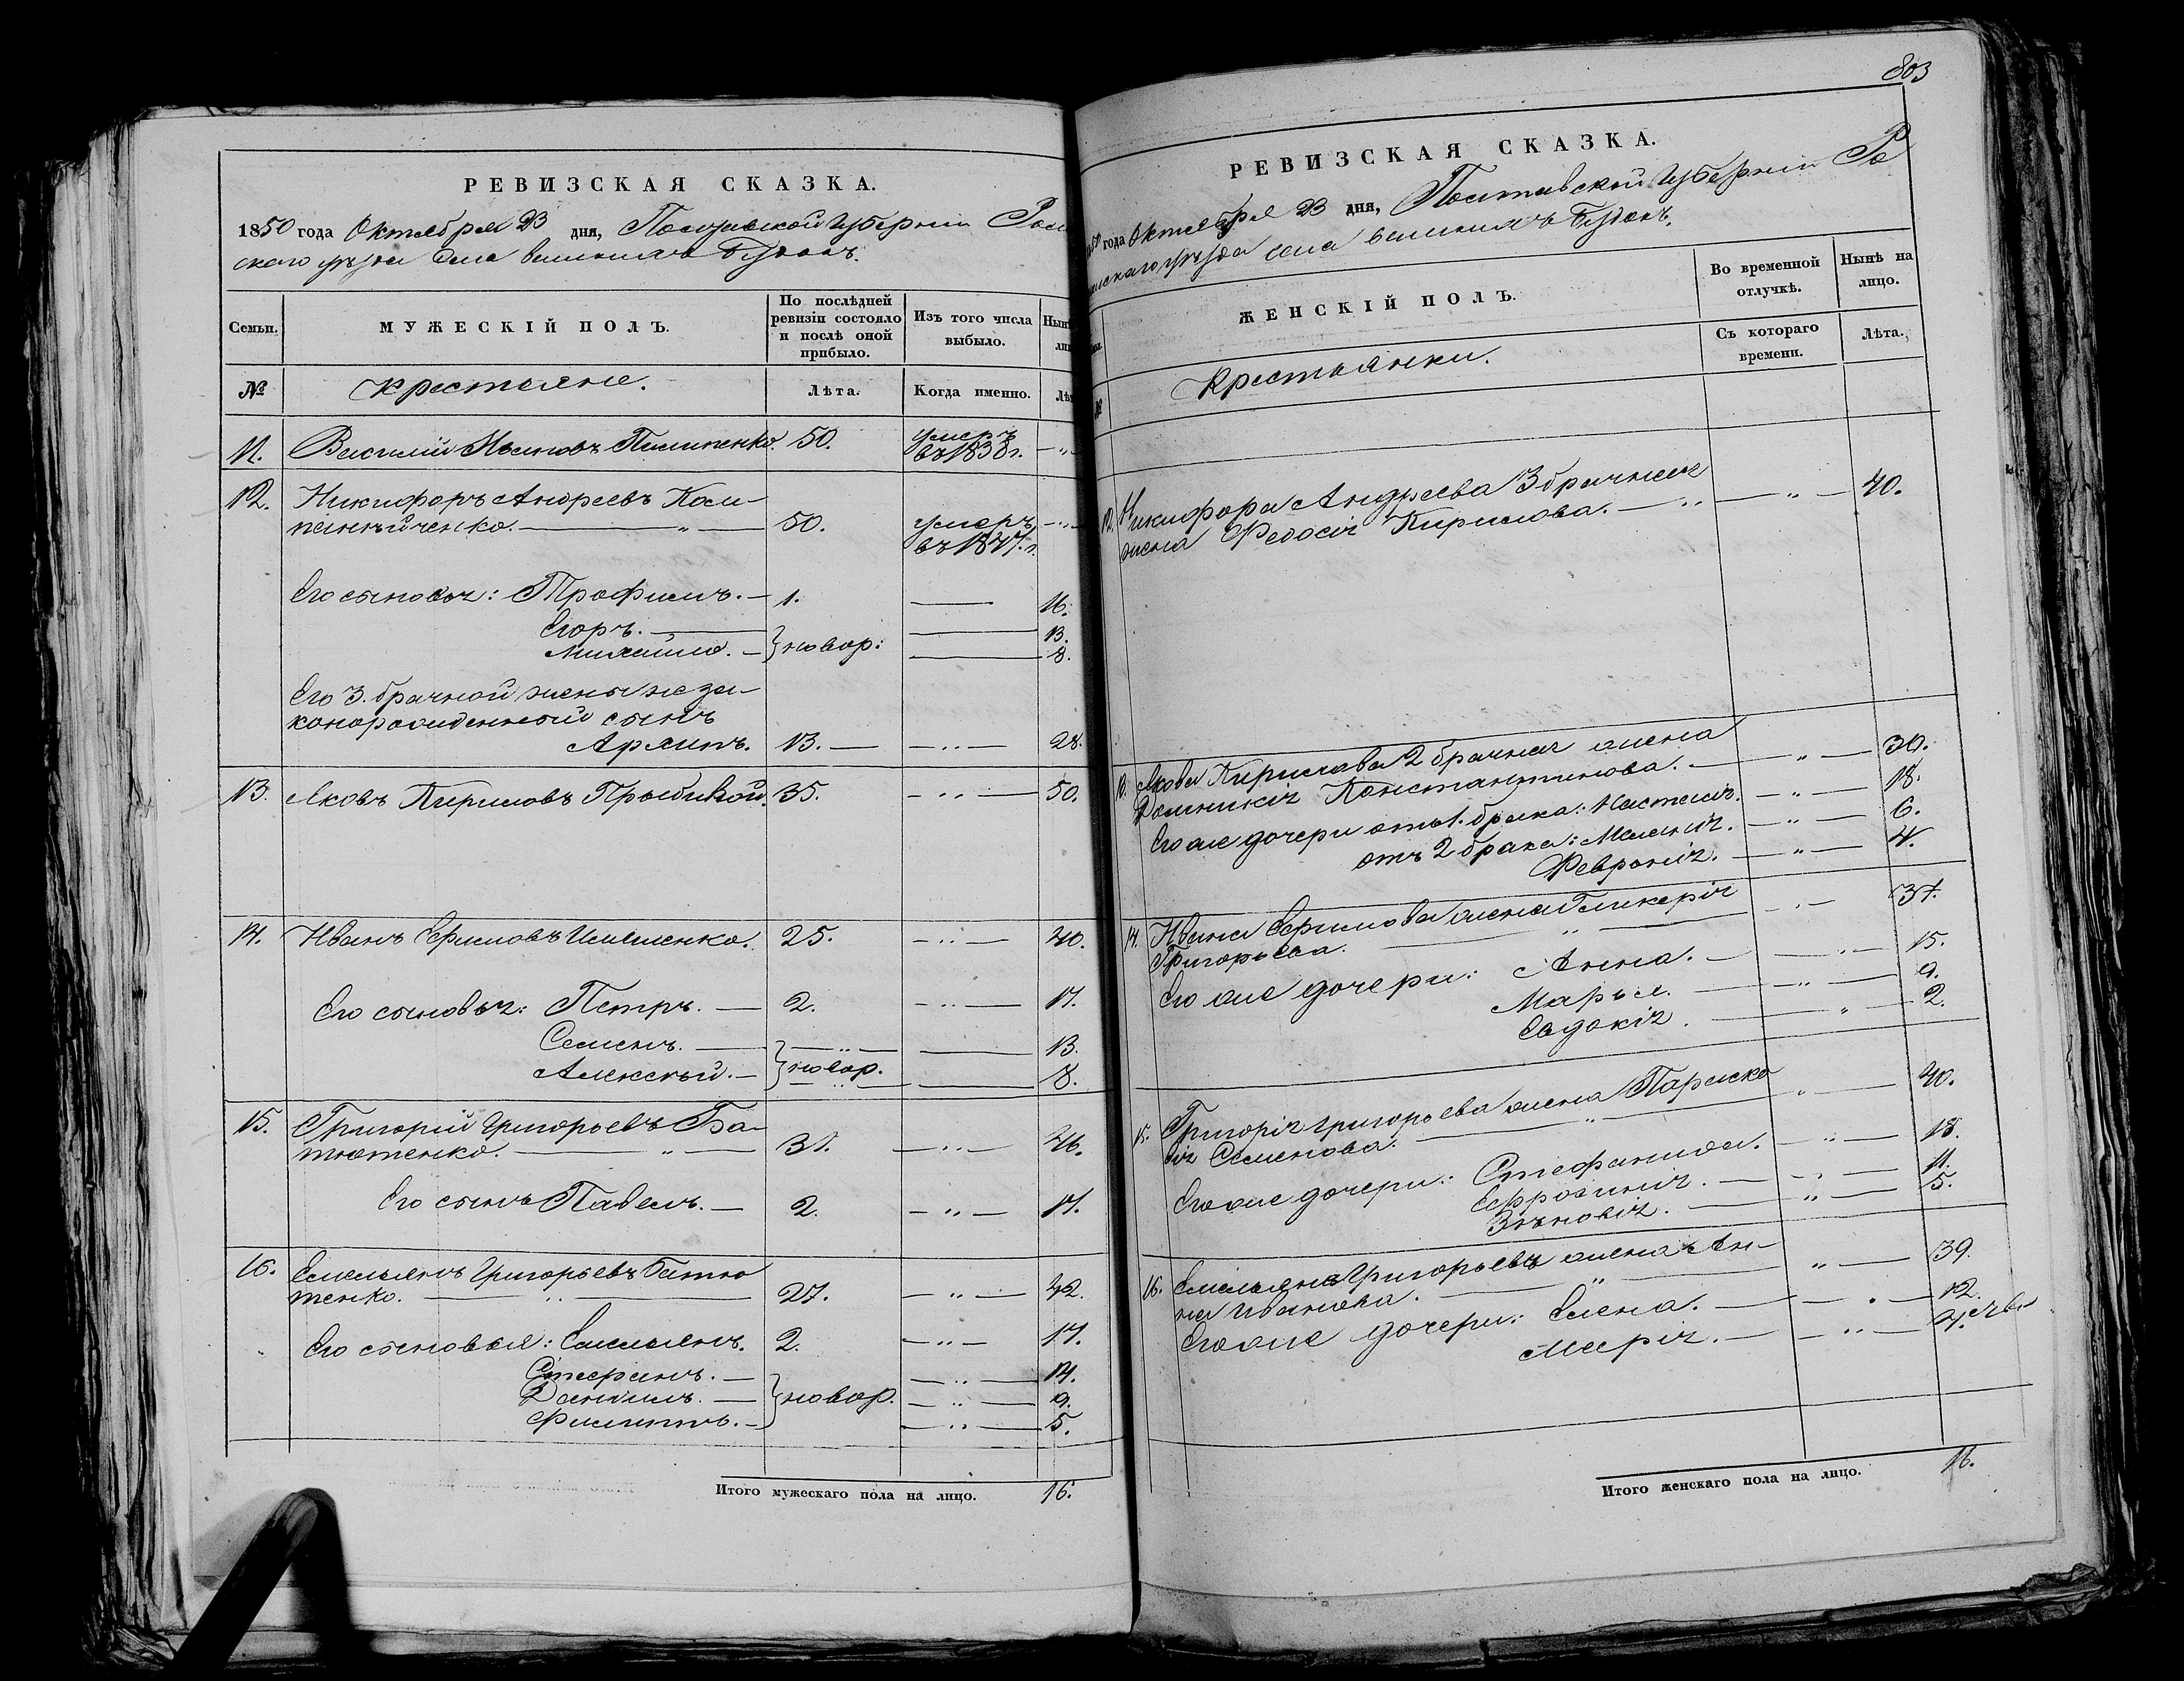 РЕВИЗСКАЯ СКАЗКА.
1850 года Октября 23 дня, Полтавской Губерніи Ром
скаго уѣзда Села великихъ Будокъ.
Семьи.
МУЖЕСКІЙ ПОЛЪ.
По послѣдней ревизіи состояло и послѣ оной прибыло.
Изъ того числа выбыло.
№
Крестьяне.
Лѣта.
Когда именно.
11. Василій Ивановъ Пилипенко. 50. умеръ въ 1838 г.
12. Никифоръ Андреевъ
50. умеръ
Его сыновья: Трофимъ. 1. 16.
Егоръ. 13.
Михайло. новор: 8.
Его 3. брачной жены неза-
коннорожденной сынъ
Архипъ. 13. 28.
13. Яковъ Кириловъ 35. 50.
14. Иванъ Ефимовъ 25. 40.
Его сыновья: Петръ. 2. 17.
Семенъ. 13.
Алексѣй. новор. 8.
15. Григорій Григорьевъ Ба-
тютенко. 31. 46.
Его сынъ Павелъ. 2. 17.
16. Емельянъ Григорьевъ Батю
тенко. 27. 42.
Его сыновья: Емельянъ. 2. 17.
Стефанъ. 14.
Даніилъ. новор. 9.
Филиппъ. 5.
Итого мужескаго пола на лицо. 16.
803
РЕВИЗСКАЯ СКАЗКА.
года Октября 23 дня, Полтавской Губерніи Ро
менскаго уѣзда села великихъ Будокъ.
ЖЕНСКІЙ ПОЛЪ.
Во временной отлучкѣ.
Нынѣ на лицо.
Съ котораго времени.
Лѣта.
№
Крестьянки.
12. Никифора Андреева 3 брачная
жена Федосія Кирилова. 40.
13. Якова Кирилова 2 брачная жена
Домникія Константинова. 30.
Его же дочери отъ 1. брака: Настасія. 18.
отъ 2 брака: Меланія. 6.
Февронія. 4.
14. Ивана Ефимова жена Гликерія
Григорьева. 37.
Его же дочери: Анна. 15.
Марья. 9.
Евдокія. 2.
15. Григорія Григорьева жена Параске
вія Семенова. 40.
Его же дочери: Стефанида. 18.
Ефросинія. 11.
Зѣновія. 5.
16. Емельяна Григорьева жена Ан-
на Иванова. 39.
Его же дочери: Елена. 12.
Марія.
Итого женскаго пола на лицо. 16.